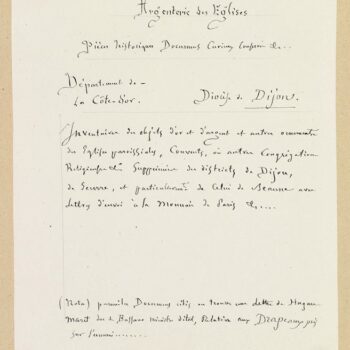 Argenterie des Eglises
Pièces historiques Documens Curieux
Département de
La Côte-d'or.
Diocèse de Dijon.
Inventaires des objets d'or et d'argent et autres ornements
des Eglises paroissiales, Couvents, ou autres Congrégations
Religieuses Supprimées des districts de Dijon,
de Seurre, et particulièrement de Celui de Beaune avec
lettres d'envoi à la Monnaie de Paris &....
(Nota) parmi les Documens cités on trouve une lettre de
duc de Bassano ministre d'état, Relative aux Drapeaux pris
sur l'ennemi......